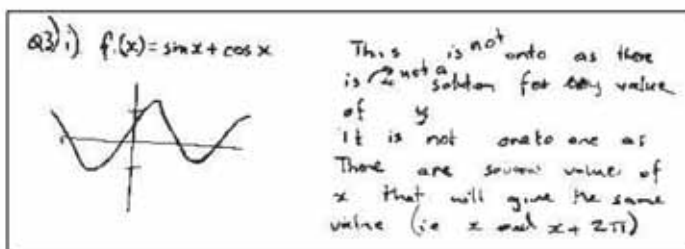 Q3) i) f.(x) = sin x + cos x
This is not onto as there
is not a solution for value
of y
It is not one to one as
There are several values of
x that will give the same
value (ie x and x + 2π)